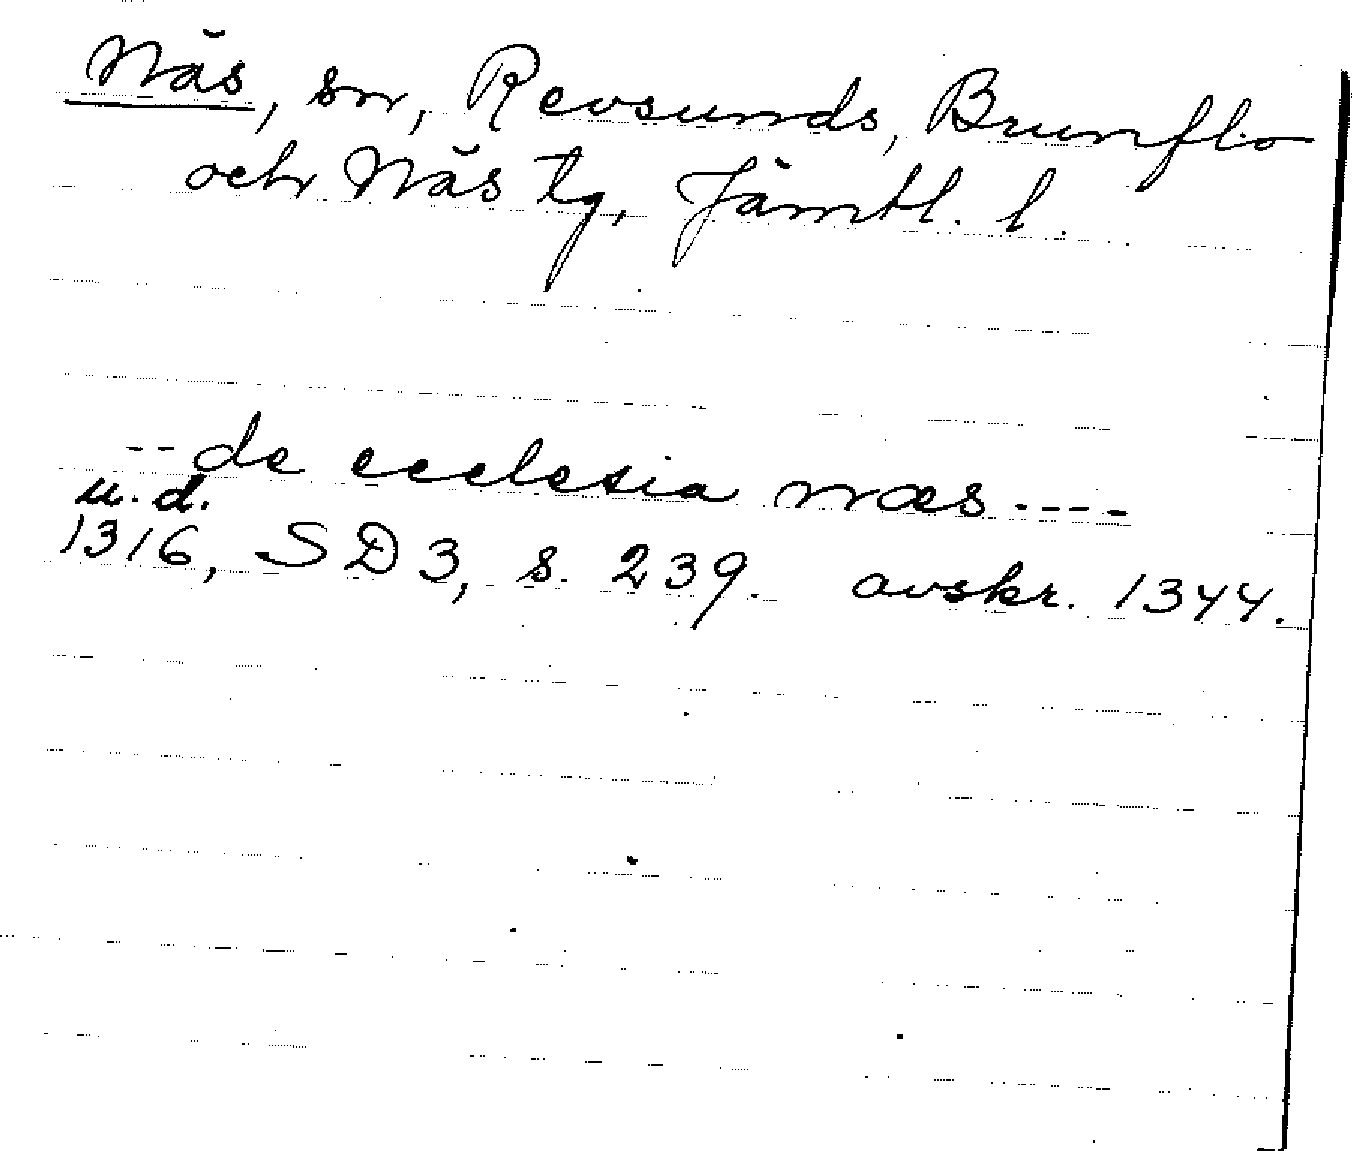 Näs, sn, Revsunds, Brunflo
och Näs tg, Jämtl. l.
-- de ecclesia næs ----
u. d.
1316, SD 3, s. 239. avskr. 1344.